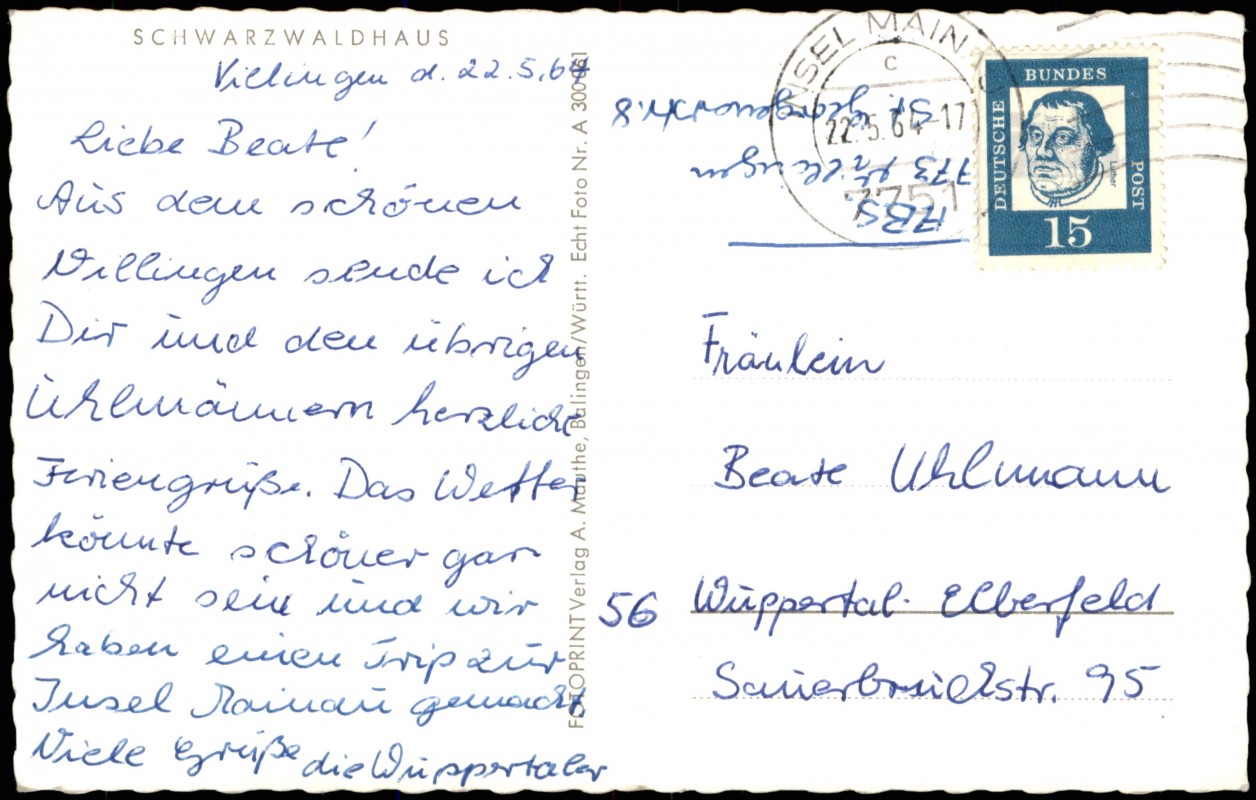 SCHWARZWALDHAUS
Villingen d. 22.5.64
Liebe Beate!
Aus dem schönen
Villingen sende ich
Dir und den übrigen
Uhlmännern herzliche
Feriengrüße. Das Wetter
könnte schöner gar
nicht sein und wir
haben einen Trip zur
Insel Mainau gemacht
Viele Grüße die Wuppertaler
FOTOPRINT Verlag A. Mauthe, Balingen/Württ. Echt Foto Nr. A 300
INSEL MAINAU
c
22.5.64-17
7751
DEUTSCHE
BUNDES
POST
Luther
15
ABS.
773 Villingen
St. 8
Fräulein
Beate Uhlmann
56 Wuppertal-Elberfeld
Sauerbruchstr. 95